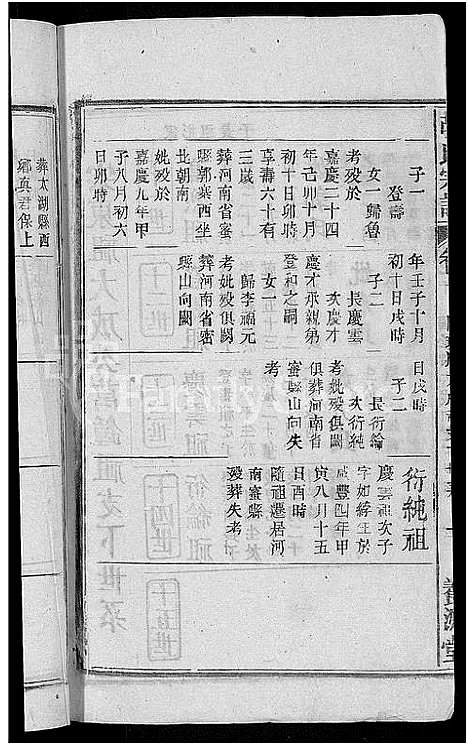 子一
登壽
女一歸魯
考殁於
嘉慶二十四
年己卯十月
初十日卯時
享壽六十有
三歲
葬河南省密
縣郭寨西坐
北朝南
妣殁於
嘉慶九年甲
子八月初六
日卯時
年壬子十月
初十日戌時
子二
長慶雲
次慶才
慶才承親弟
登和之嗣
女一
歸李福元
考妣殁俱闕
葬河南省密
縣山向闕
日戌時
子二
長衍綸
次衍純
考妣殁俱闕
俱葬河南省
密縣山向失
考
衍純祖
慶雲祖次子
字如綍生於
咸豐四年甲
寅八月十五
日酉時
隨祖遷居河
南密縣
殁葬失考
葬太湖縣西
鄉真君保上